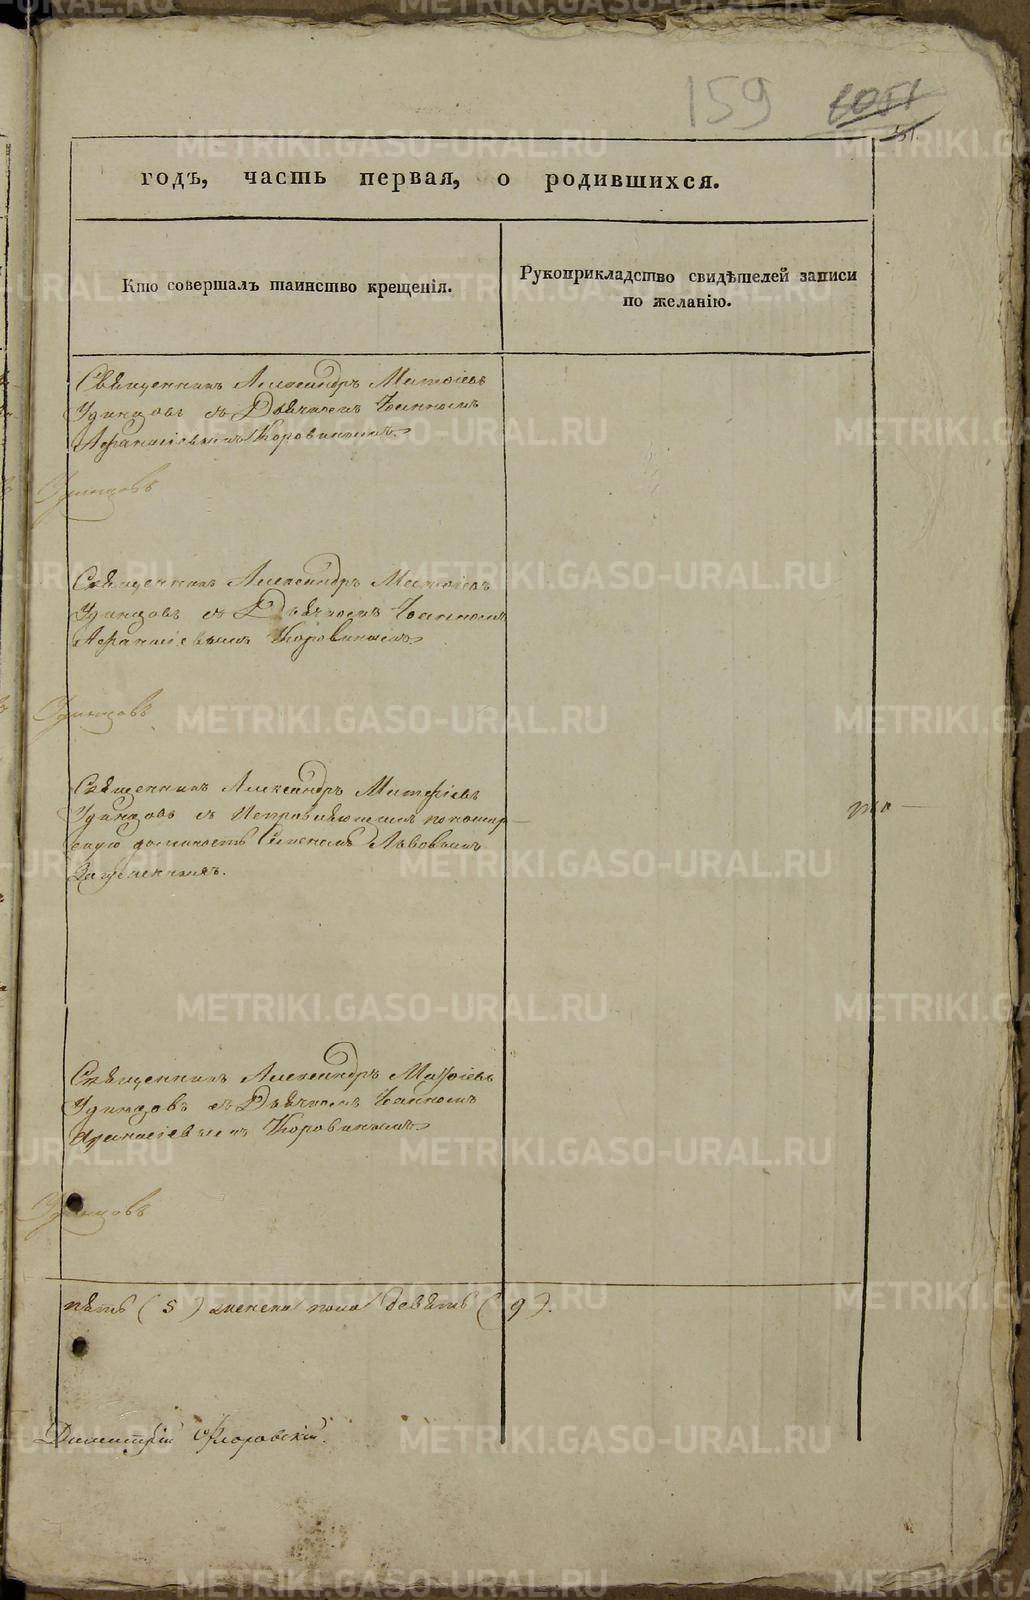 159
годъ, часть первая, о родившихся.
Кто совершалъ таинство крещенія.
Рукоприкладство свидѣтелей записи
по желанію.
Священникъ Александръ Матѳіевъ
Удинцовъ съ Дьячкомъ Іоанномъ
Афанасіевымъ Коровинымъ
Удинцовъ
Священникъ Александръ Матѳіевъ
Удинцовъ съ Дьячкомъ Іоанномъ
Афанасіевымъ Коровинымъ
Удинцовъ
Священникъ Александръ Матѳіевъ
Удинцовъ съ Исправляющимъ
должность Львовымъ
Священникъ Александръ Маѳѳіевъ
Удинцовъ съ Дьячкомъ Іоанномъ
Афанасіевымъ Коровинымъ
Удинцовъ
пять (5) женска пола девять (9).
Димитрій Флоровскій.
METRIKI.GASO-URAL.RU